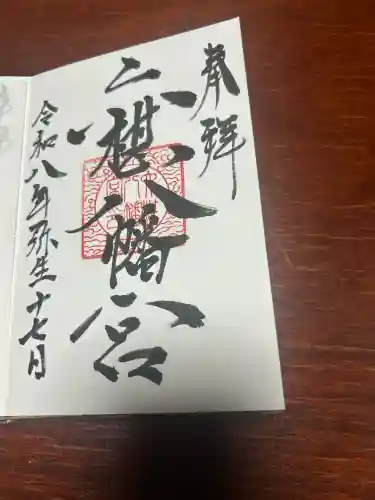 奉拝
八幡宮
令和八年弥生十七日